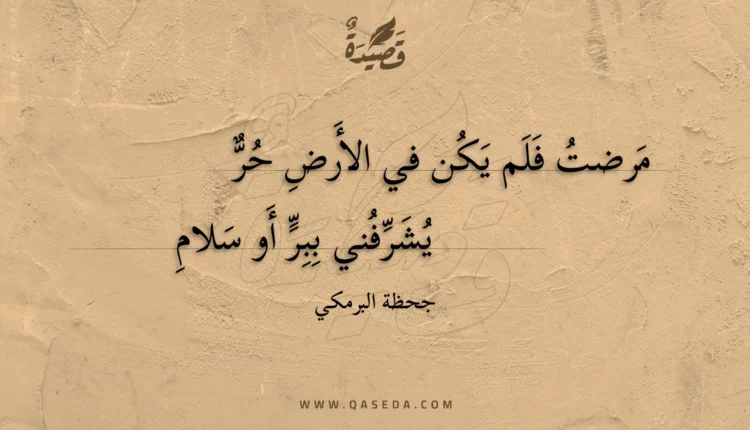 قَصِيدَةٌ
مَرضتُ فَلَم يَكُن في الأَرضِ حُرٌّ
يُشَرِّفُني بِبِرٍّ أَو سَلامِ
جحظة البرمكي
WWW.QASEDA.COM